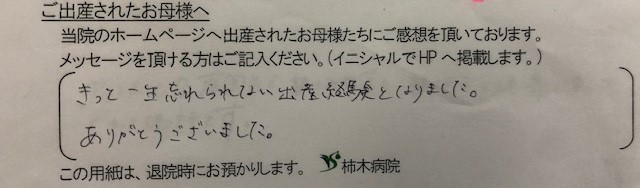 ご出産されたお母様へ
当院のホームページへ出産されたお母様たちにご感想を頂いております。
メッセージを頂ける方はご記入ください。(イニシャルでHPへ掲載します。)
きっと一生忘れられない出産経験となりました。
ありがとうございました。
この用紙は、退院時にお預かりします。 柿木病院